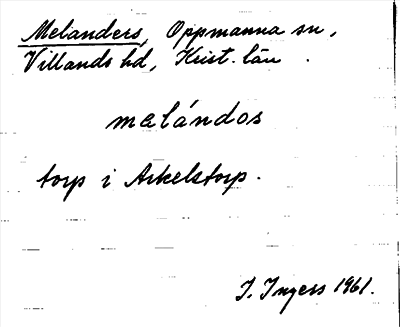 Melanders, Oppmanna sn,
Villands hd, Krist. län.
melándos
torp i Arkelstorp.
I. Ingers 1961.